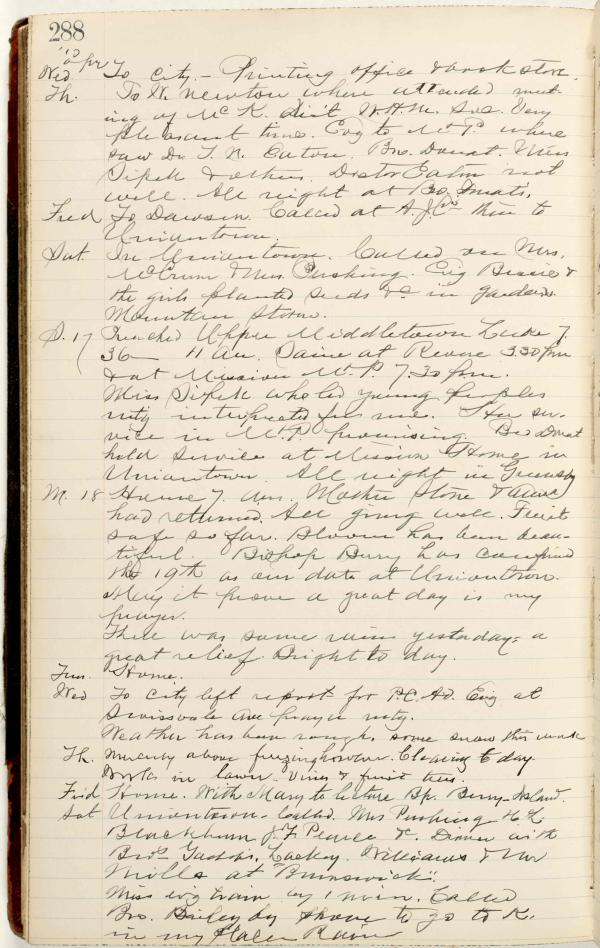 288
'10 Apr
Wed. To City - Printing office & book store.
Th. To W. Newton where attended meet-
ing of McK. dist W.H.M. Soc. Very
pleasant time. Evg to Mt P. where
saw Dr T. N. Eaton. Bro. Donat. Miss
Sipek & others. Doctor Eaton not
well. All night at Bro Donat's.
Frid To Dawson. Called at A.J.C's then to
Uniontown.
Sat In Uniontown. Called on Mrs.
McCrum & Mrs. Pushing. Evg Bessie &
the girls planted seeds &c in garden.
Mountain Storm.
S. 17 Preached Upper Middletown Luke 7.
36 - 11 Am. Same at Revere 3.30 pm
& at Mission Mt. P 7.30 pm.
Miss Sipek who led young peoples
mtg interpreted for me. The ser-
vice in Mt. P. promising. Bro Donat
held service at Mission Home in
Uniontown. All night in Greensbg
M. 18 Home 7. Am. Mother Stone &
had returned. All going well. Fruit
safe so far. Bloom has been beau-
tiful. Bishop Berry has confirmed
the 19th as our date at Uniontown.
May it prove a great day is my
prayer.
There was some rain yesterday; a
great relief. Bright to day.
Tues. Home.
Wed To City left report for P.C. Ad. Evg at
Swissvale Ave prayer mtg.
Weather has been rough, some snow this week
Th. Mercury above freezing however. Clearing to day.
Works in lawn. Vines & fruit trees.
Frid Home. With Mary to lecture Bp. Berry
Sat Uniontown. Called. Mrs Pushing
Blackburn J.F. Pearce &c. Dinner with
Bros Lackey. Williams & Mr
Mills at "Brunswick".
Miss evg train by 1 min. Called
Bro. Bailey by phone to go to R.
in my place